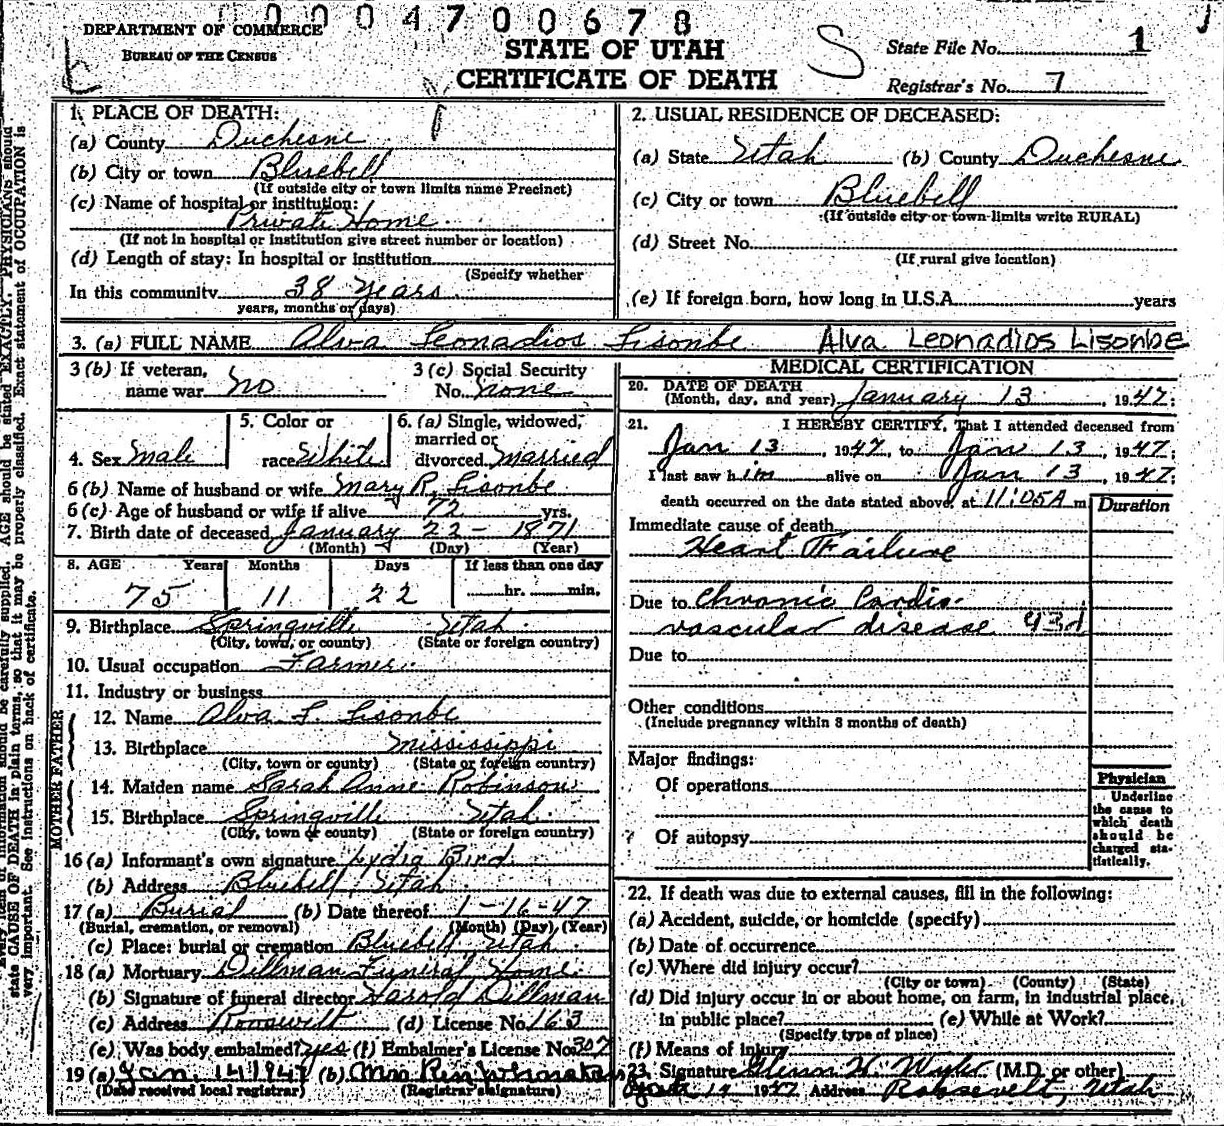 0000 4700678
DEPARTMENT OF COMMERCE
BUREAU OF THE CENSUS
STATE OF UTAH
CERTIFICATE OF DEATH
S
State File No. 1
Registrar's No. 7
1. PLACE OF DEATH:
(a) County Duchesne
(b) City or town Bluebell
(If outside city or town limits name Precinct)
(c) Name of hospital or institution:
Private Home
(If not in hospital or institution give street number or location)
(d) Length of stay: In hospital or institution
(Specify whether
In this community 38 Years
years, months or days)
2. USUAL RESIDENCE OF DECEASED:
(a) State Utah (b) County Duchesne
(c) City or town Bluebell
(If outside city or town limits write RURAL)
(d) Street No.
(If rural give location)
(e) If foreign born, how long in U.S.A. years
3. (a) FULL NAME Alva Leonadios Lisonbe Alva Leonadios Lisonbe
3 (b) If veteran,
name war no
3 (c) Social Security
No. none
4. Sex Male
5. Color or
race White
6. (a) Single, widowed,
married or
divorced Married
6 (b) Name of husband or wife Mary R. Lisonbe
6 (c) Age of husband or wife if alive 72 yrs.
7. Birth date of deceased January 22 - 1871
(Month) (Day) (Year)
8. AGE Years Months Days If less than one day
75 11 22 hr. min.
9. Birthplace Springville Utah
(City, town, or county) (State or foreign country)
10. Usual occupation Farmer
11. Industry or business
FATHER
12. Name Alva L. Lisonbe
13. Birthplace Mississippi
(City, town or county) (State or foreign country)
MOTHER
14. Maiden name Sarah Anne Robinson
15. Birthplace Springville Utah
(City, town or county) (State or foreign country)
16 (a) Informant's own signature Lydia Bird
(b) Address Bluebell, Utah
17 (a) Burial (b) Date thereof 1-16-47
(Burial, cremation, or removal) (Month) (Day) (Year)
(c) Place: burial or cremation Bluebell, Utah
18 (a) Mortuary Dillman Funeral Home
(b) Signature of funeral director Harold Dillman
(c) Address Roosevelt (d) License No. 163
(e) Was body embalmed? yes (f) Embalmer's License No. 307
19 (a) Jan. 14 1947 (b) Mrs
(Date received local registrar) (Registrar's signature)
MEDICAL CERTIFICATION
20. DATE OF DEATH
(Month, day, and year) January 13, 1947;
21. I HEREBY CERTIFY, That I attended deceased from
Jan 13, 1947, to Jan 13, 1947;
I last saw him alive on Jan 13, 1947;
death occurred on the date stated above, at 11:05A m.
Duration
Immediate cause of death
Heart Failure
Due to Chronic Cardio-
vascular disease 93d
Due to
Other conditions
(Include pregnancy within 3 months of death)
Major findings:
Of operations
Of autopsy
Physician
Underline
the cause to
which death
should be
charged sta-
tistically.
22. If death was due to external causes, fill in the following:
(a) Accident, suicide, or homicide (specify)
(b) Date of occurrence
(c) Where did injury occur?
(City or town) (County) (State)
(d) Did injury occur in or about home, on farm, in industrial place,
in public place? (e) While at Work?
(Specify type of place)
(f) Means of injury
23. Signature H. (M.D. or other)
14 1947 Address Roosevelt, Utah
item of information should be carefully supplied. AGE should be stated EXACTLY. PHYSICIANS should
state CAUSE OF DEATH in plain terms, so that it may be properly classified. Exact statement of OCCUPATION is
very important. See instructions on back of certificate.